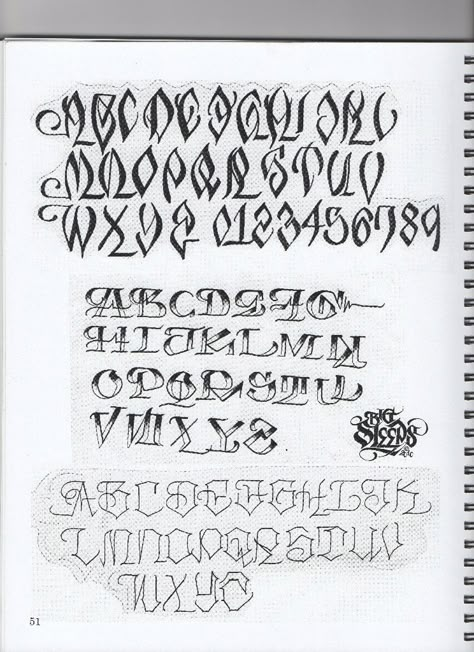 ABCDEFGHIJKL
MNOPQRSTUV
WXYZ 0123456789
ABCDEFG
HIJKLMN
OPQRSTU
VWXYZ
BIG
SLEEPS
ABCDEFGHIJK
LMNOPQRSTUV
WXYZ
51